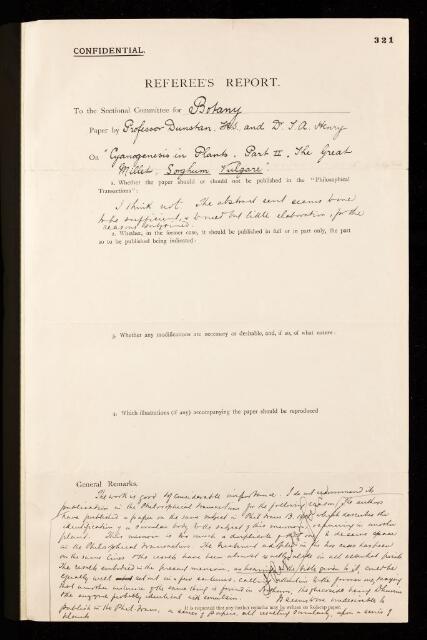 321
CONFIDENTIAL.
REFEREE'S REPORT.
To the Sectional Committee for Botany
Paper by Professor Dunstan, F.R.S. and Dr. T. A. Henry
On "Cyanogenesis in Plants. Part II. The Great
Millet, Sorghum Vulgare".
1. Whether the paper should or should not be published in the "Philosophical
Transactions":
I think not. The abstract sent seems to me
to be sufficient, & to need but little elaboration, for the
reasons
2. Whether, in the former case, it should be published in full or in part only, the part
so to be published being indicated:
3. Whether any modifications are necessary or desirable, and, if so, of what nature:
4. Which illustrations (if any) accompanying the paper should be reproduced
General Remarks.
The work is good & of considerable importance. I do not recommend its
publication in the Philosophical Transactions for the following reason; the authors
have published a paper on the same subject in Phil Trans B. which describes the
identification of a similar body to the subject of this memoir, occurring in another
plant. This memoir is too much a duplicate of to deserve space
in the Philosophical Transactions. The treatment adopted in
on the same lines & the results have been almost in all essential points
The results embodied in the present memoir, the title given to it, could be
equally well set out in a few sentences, calling attention to the former one, saying
that another instance of the same thing is found in Sorghum, the glucoside being Dhurrin
the enzyme probably identical with emulsin.
It seems to me undesirable to
publish in the Phil Trans. a series of papers all revealing similarity, upon a series of
plants
It is requested that any further remarks may be written on foolscap paper.